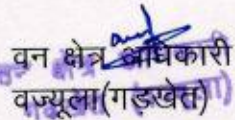 वन क्षेत्र अधिकारी
वज्यूला(गड़खेत)